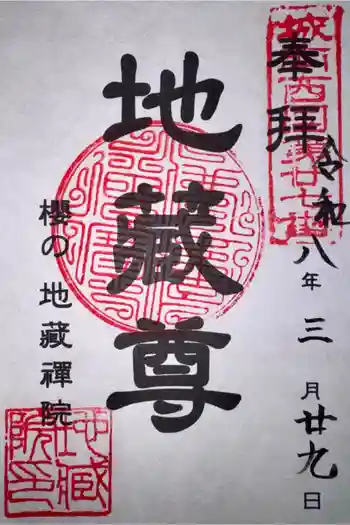 奉拝
令和八年三月廿九日
地蔵尊
櫻の地藏禪院
地蔵院印